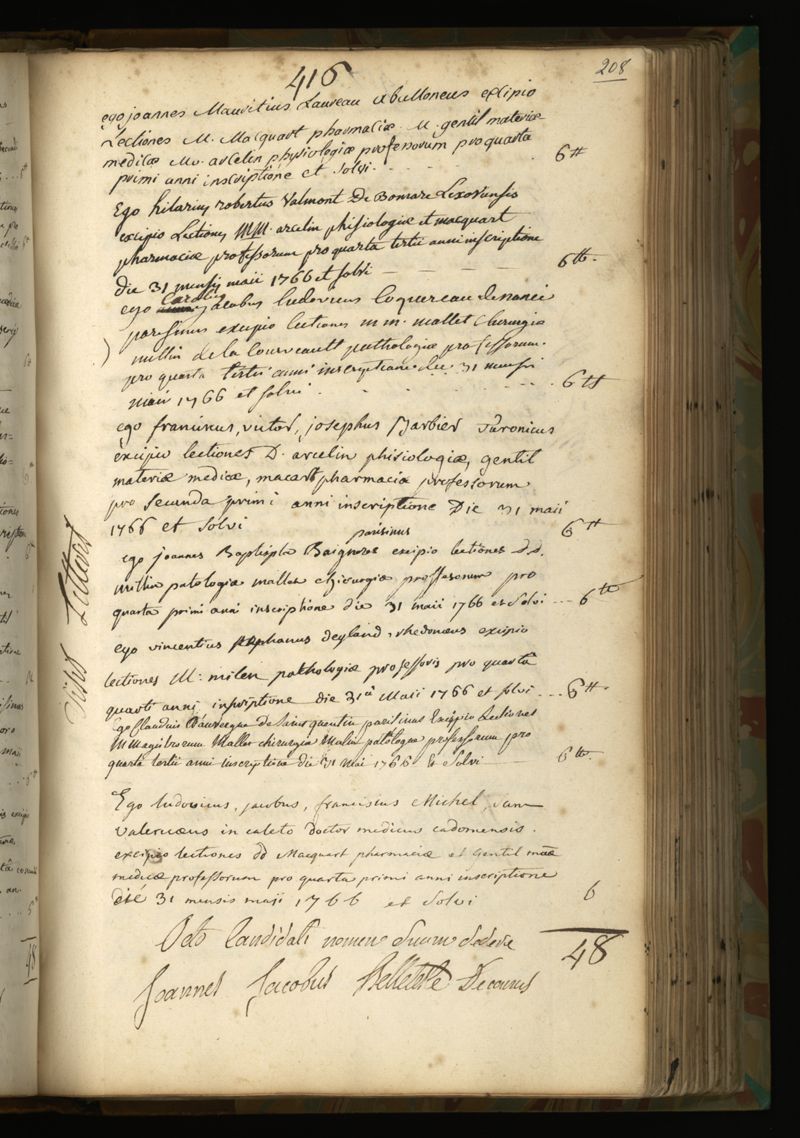 416
208
ego joannes Mauritius Laureau exipio
Lectiones M. Macquart pharmaciæ M. gentil materiæ
medicæ M. arcelin physiologiæ professorum pro quarta
primi anni inscriptione et solvi. 6tt
Ego hilarius robertus Valmont De Bomare Lexoviensis
excipio Lectiones MM. arcelin phisiologiæ et macquart
pharmaciæ professorum pro quarta tertii anni inscriptione
die 31 mensis maii 1766 et solvi 6tt.
ego Carolus jacobus ludovicus Coquereau
parisinus excipio lectiones m m. mallet Chirurgiæ
millin de la Courveault pathologiæ professorum.
pro quarta tertii anni inscriptione die 31 mensis
maii 1766 et solvi 6tt
ego franciscus, victor, josephus Barbier
excipio lectiones D. arcelin phisiologiæ, gentil
materiæ medicæ, macart pharmaciæ professorum
pro secunda primi anni inscriptione Die 31 maii
1766 et solvi 6tt
parisinus
ego joannes Baptista excipio lectiones d.d.
millin patologiæ mallet chirurgiæ professorum pro
quarta primi anni inscriptione die 31 maii 1766 et solvi 6tt
ego vincentius deyland, rhedonæus excipio
lectiones M. milen pathologiæ professoris pro quartâ
quarti anni inscriptione die 31a Maii 1766 et solvi 6tt.
Ego Claudius Dauvergne De Saint quentin parisinus Excipio Lectiones
MMagistrorum Mallet chirurgiæ Malin patologiæ professorum pro
quarta tertii anni inscriptione die 31 Mai 1766 Et Solvi 6tt.
Ego ludovicus, jacobus, franciscus Michel, sanc
valericæus in caleto doctor medicus cadomensis.
excipio lectiones dd Macquart pharmaciæ et Gentil
medicæ professorum pro quarta primi anni inscriptione
die 31 mensis maii 1766 et solvi 6
Octo Candidati nomen suum dedere 48
Joannes Jacobus Belleteste Decanus